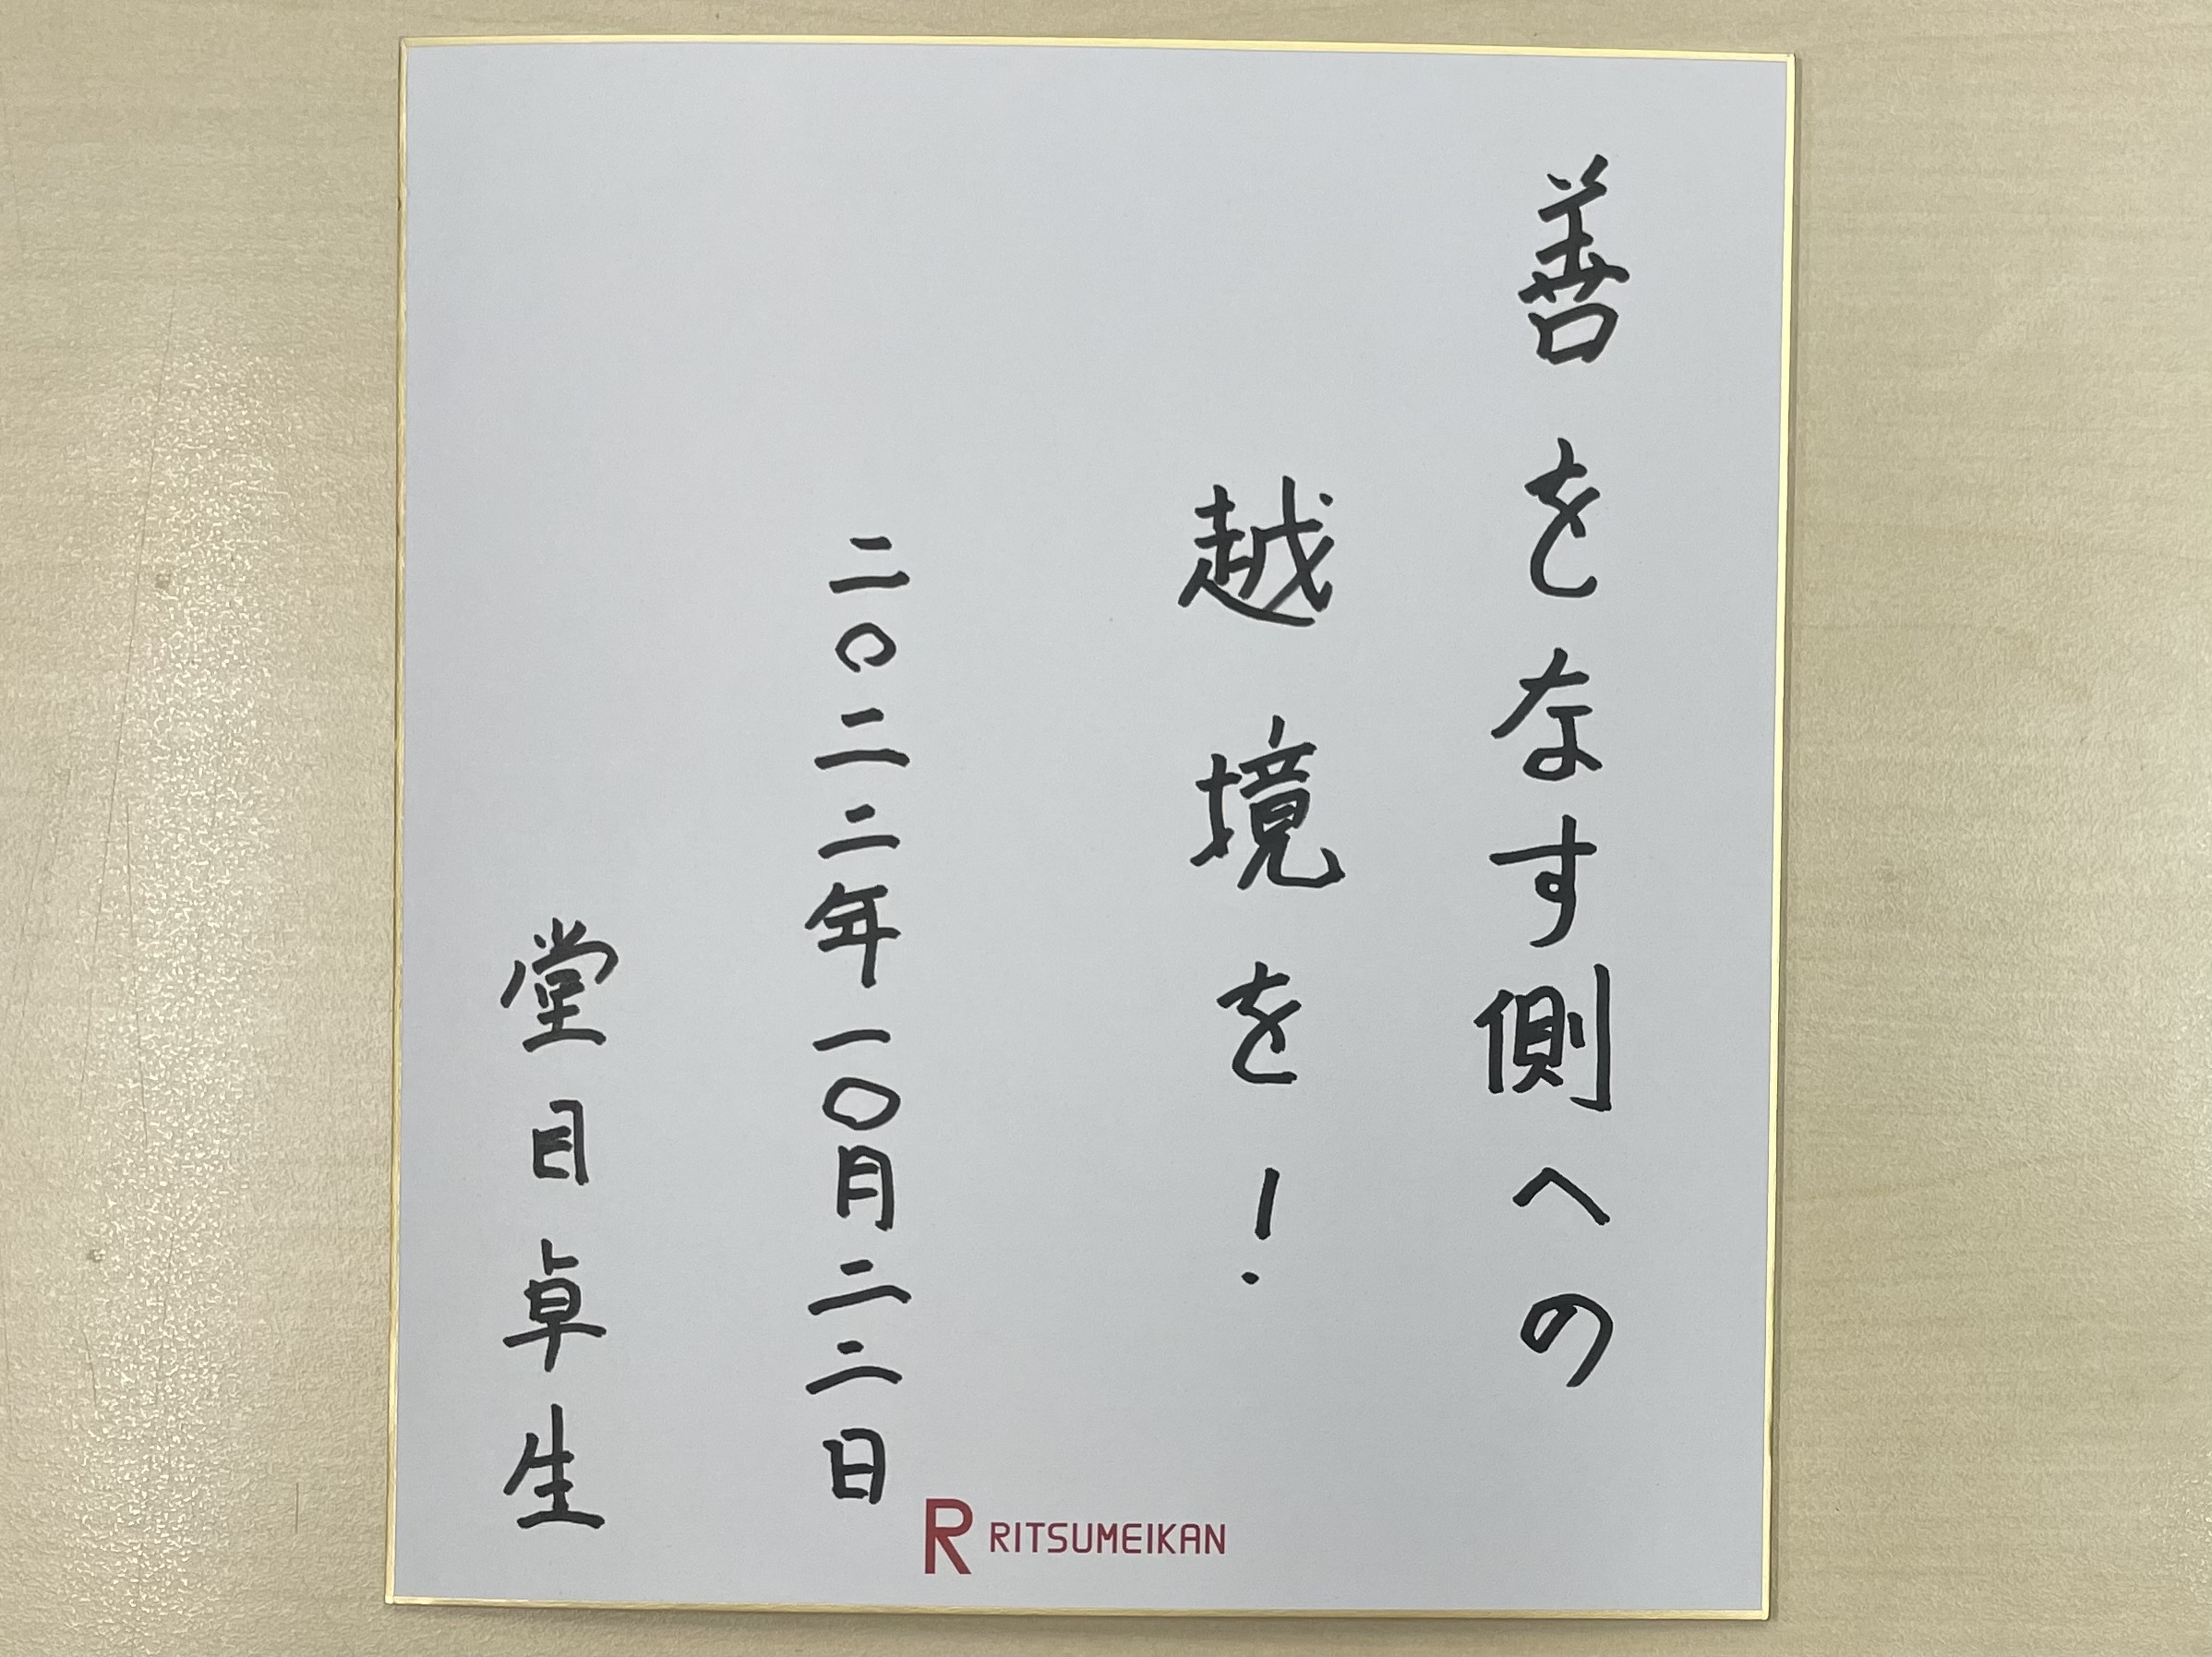 善をなす側への
越境を！
二〇二二年一〇月二二日
堂目卓生
R RITSUMEIKAN